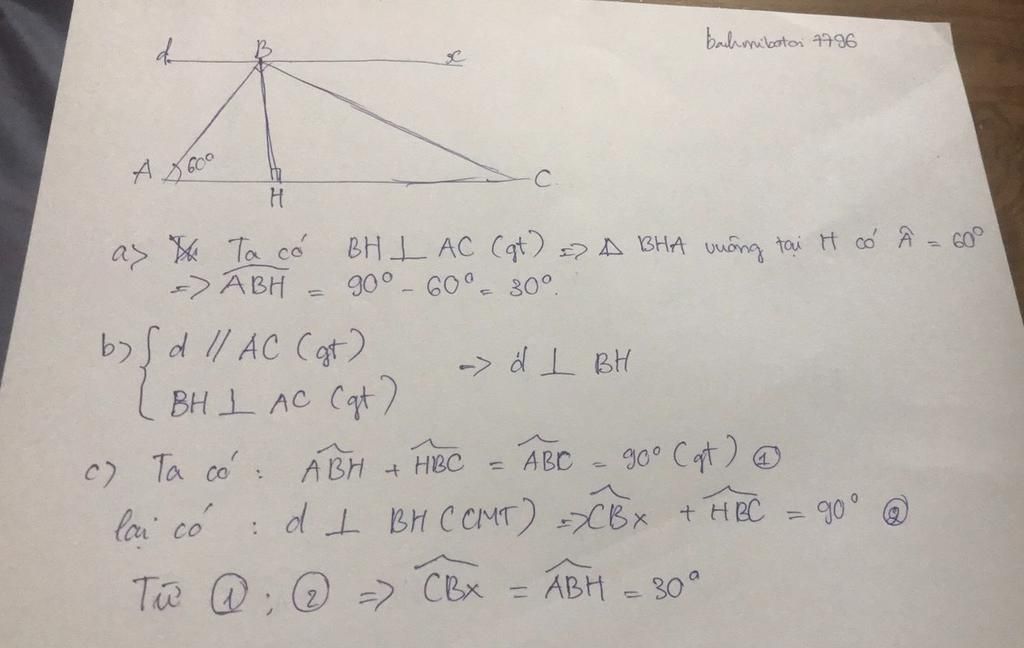 bachmibatoi 7796
d B x
A 60° H C
a> Ta có BH ⊥ AC (gt) => Δ BHA vuông tại H có Â = 60°
=> \widehat{ABH} = 90° - 60° = 30°.
b> { d // AC (gt)
BH ⊥ AC (gt) => d ⊥ BH
c) Ta có : \widehat{ABH} + \widehat{HBC} = \widehat{ABC} = 90° (gt) ①
lại có : d ⊥ BH (CMT) => \widehat{CBx} + \widehat{HBC} = 90° ②
Từ ① ; ② => \widehat{CBx} = \widehat{ABH} = 30°